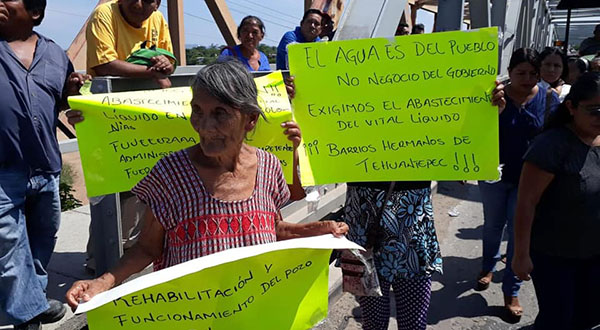 EL AGUA ES DEL PUEBLO
NO NEGOCIO DEL GOBIERNO
EXIGIMOS EL ABASTECIMIEN
DEL VITAL LÍQUIDO
¡¡¡ BARRIOS HERMANOS DE
TEHUANTEPEC !!!
ABASTECIMI
LÍQUIDO EN
ADMINISTRA
REHABILITACIÓN Y
FUNCIONAMIENTO DEL POZO